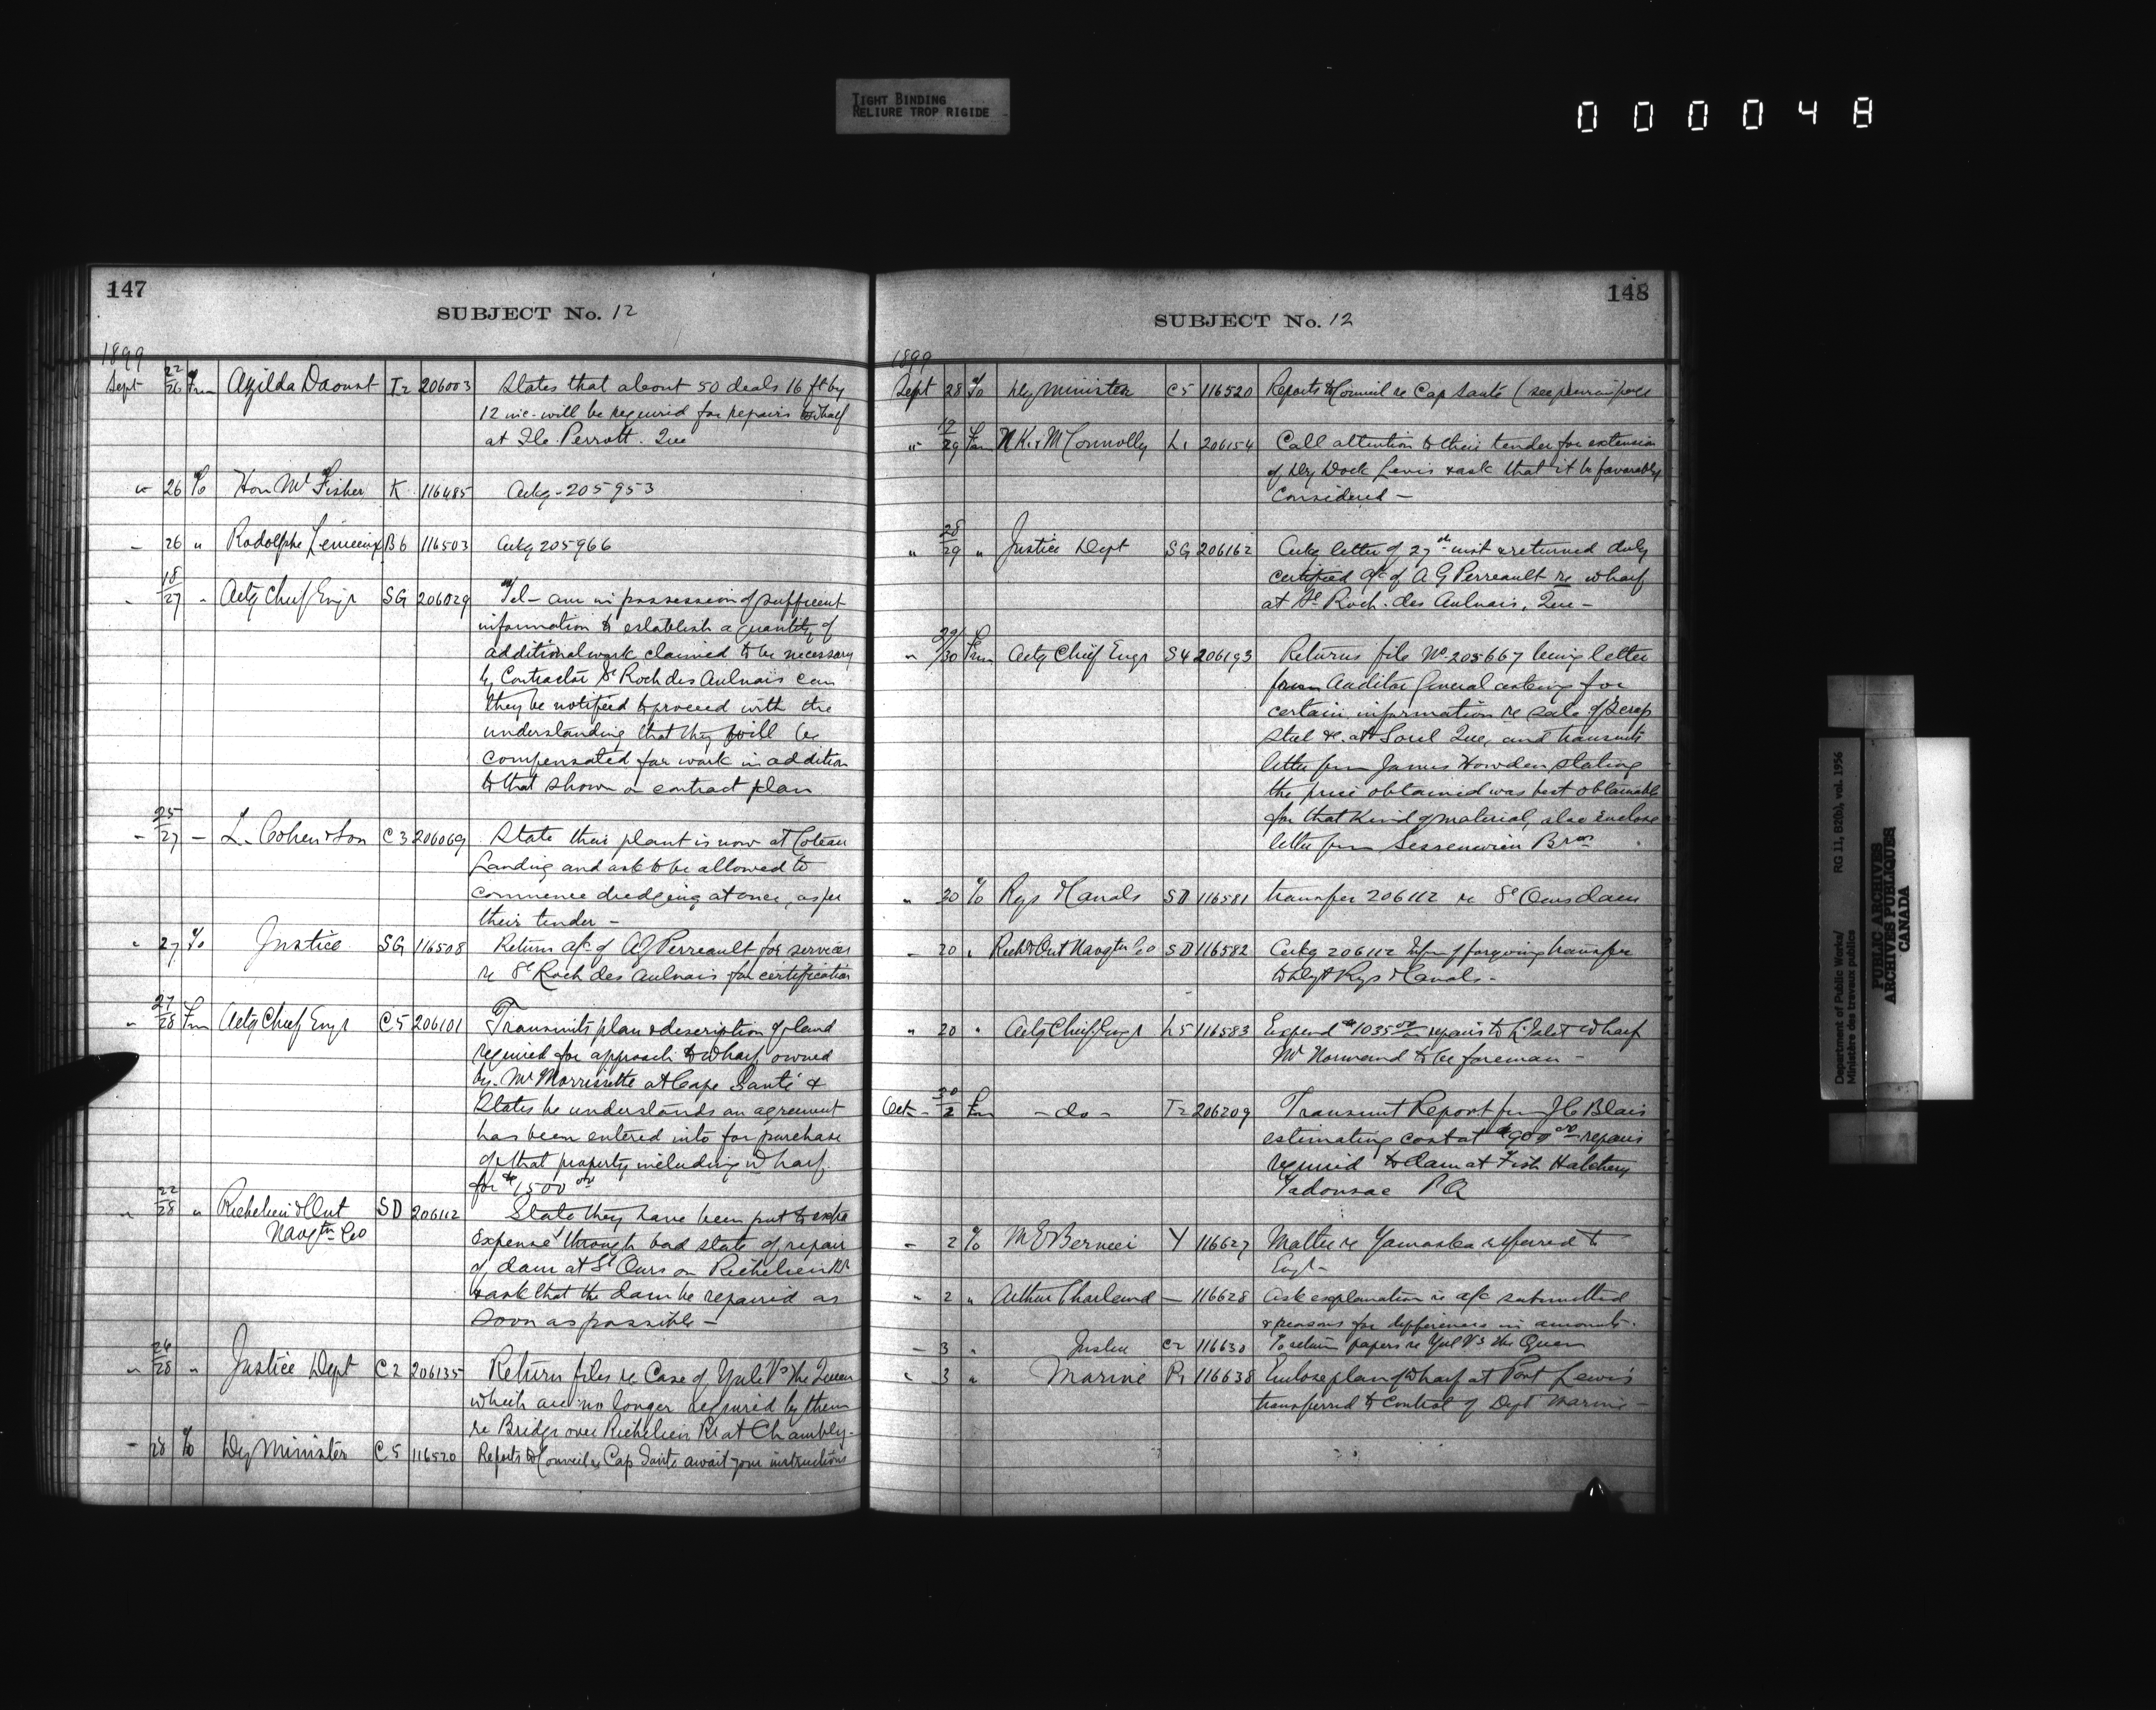 TIGHT BINDING
RELIURE TROP RIGIDE
000048
147
SUBJECT No. 12
1899
Sept 22/26 Frm Azilda Daoust I2 206003 States that about 50 deals 16 ft by
12 inc- will be required for repairs to wharf
at Ile Perrott. Que
" 26 To Hon Mr Fisher K 116485 Ackg - 205953
" 26 " Rodolphe Lemieux B6 116503 Ackg 205966
" 18/27 " Actg Chief Engr SG 206029 Tel - am in possession of sufficient
information to establish a quantity of
additional work claimed to be necessary
by Contractor St Roch des Aulnais can
they be notified to proceed with the
understanding that they will be
compensated for work in addition
to that shown on contract plan
" 25/27 - L. Cohen & Son C3 206069 State their plant is now at Coteau
Landing and ask to be allowed to
commence dredging at once, as per
their tender -
" 27 To Justice SG 116508 Return a/c of AG Perreault for services
re St Roch des Aulnais for certification
" 27/28 Frm Actg Chief Engr C5 206101 Transmits plan & description of land
required for approach to wharf owned
by Mr Morrissette at Cape Santé &
States he understands an agreement
has been entered into for purchase
of that property including wharf
for $1500 00
" 22/28 " Richelieu & Ont SD 206112 State they have been put to extra
Navgtn Co expense through bad state of repair
of dam at St Ours on Richelieu Rr
& ask that the dam be repaired as
soon as possible -
" 26/28 " Justice Dept C2 206135 Return files re Case of Yule Vs the Queen
which are no longer required by them
re Bridge over Richelieu Rr at Chambly -
" 28 To Dy Minister C5 116520 Reports to Council re Cap Santé await your instructions
148
SUBJECT No. 12
1899
Sept 28 To Dy Minister C5 116520 Reports to Council re Cap Santé (see previous page
" 12/29 Frm N K & M Connolly L1 206154 Call attention to their tender for extension
of Dry Dock Levis & ask that it be favorably
Considered -
" 28/29 " Justice Dept SG 206162 Ackg letter of 27th inst & returned duly
certified a/c of A G Perreault re wharf
at St Roch des Aulnais, Que -
" 29/30 Frm Actg Chief Engr S4 206193 Returns file No 205667 being letter
from Auditor General asking for
certain information re sale of Scrap
Steel &c. at Sorel Que, and transmits
letter from James Howden stating
the price obtained was best obtainable
for that kind of material, also enclose
letter from Bros
" 30 To Rys & Canals SD 116581 transfer 206112 re St Ours dam
" 30 " Rich & Ont Navgtn Co SD 116582 Ackg 206112 Infm of forgoing transfer
to Dept Rys & Canals -
" 30 " Actg Chief Engr L5 116583 Expend $1035 00 on repairs to L'Islet wharf
Mr Normand to be foreman -
Oct - 30/2 Frm - do - T2 206209 Transmit Report from J C Blais
estimating cost at $900 00 repairs
required to dam at Fish Hatchery
Tadousac PQ
" 2 To M E Bernier Y 116627 Matter re Yamaska referred to
Engr -
" 2 " Arthur Charlend - 116628 Ask explanation re a/c submitted
& reasons for difference in amounts.
- 3 " Justice C2 116630 To return papers re Yule Vs the Queen
" 3 " Marine P1 116638 Enclose plan of wharf at Port Lewis
transferred to Control of Dept Marine -
Department of Public Works/ RG 11, B2(b), vol. 1956
Ministère des travaux publics
PUBLIC ARCHIVES
ARCHIVES PUBLIQUES
CANADA